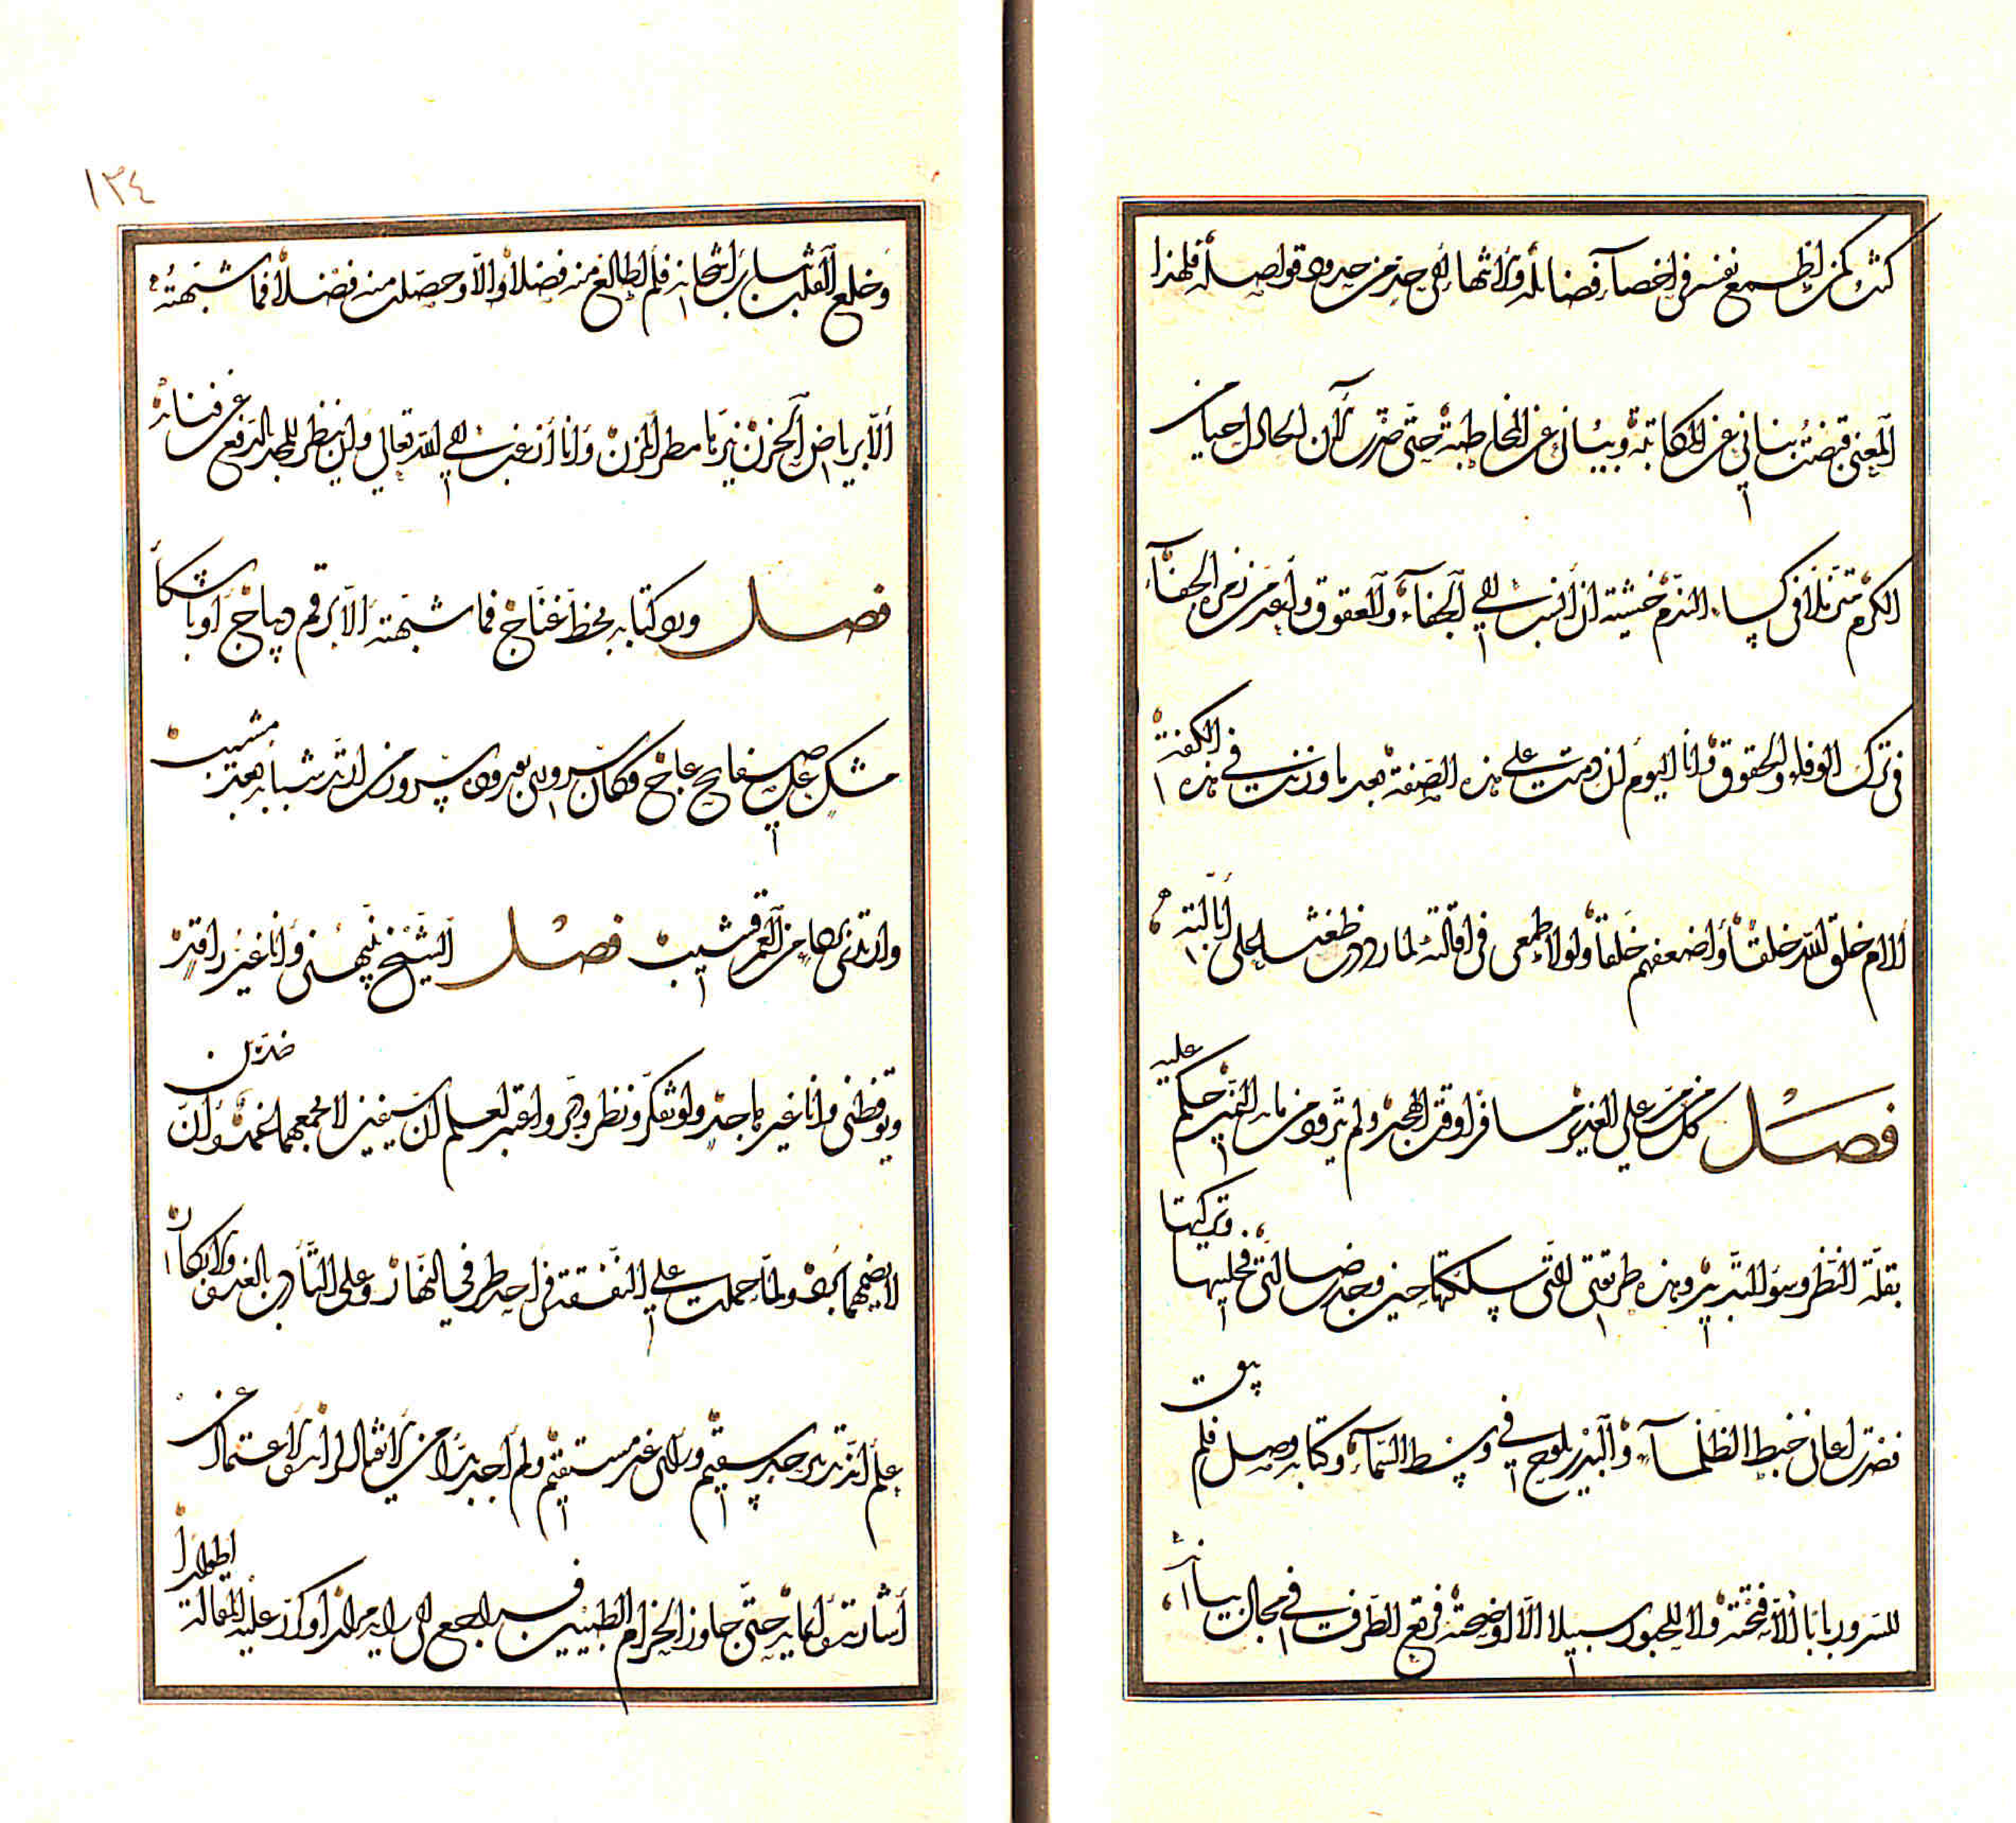 كنت كمن يطمع نفسه في إحصاء فضائله والانتهاء إلى حد من حدود فواضله فلهذا
المعنى قبضت بناني عن المكاتبة وبياني عن المخاطبة حتى صرت الآن لحال حياء من
الكرم متزملا في كساء الندم خشية ان أنسب إلى الجفاء والعقوق وأعد من زمرة الجفاة
في ترك الوفاء والحقوق وانا اليوم لئن دمت على هذه الصفة بعد ما وزنت في هذه الكفة
ألأم خلق الله خلقا وأضعفهم خلقا ولولا طمعي في اقالته لما رددت ضغثا على ابالة
فصل كل من مر على الغدير مسافرا وقت الهجير ولم يترو من مائه النمير حكم عليه
بقلة النظر وسوء التدبير وهذه طريقتي التي سلكتها حين وجد ضالتي فخليتها وتركتها
فصرت اعاني خبط الظلماء والبدر يلوح في وسط السماء وكتابه وصل فلم يبق
للسرور بابا الا فتحه ولا للحبور سبيلا الا اوضحه فرتع الطرف في مجال بيانه
١٣٤
وخلع القلب سائر اشجانه فلم اطالع منه فصلا الا وحصلت منه فضلا فما شبهته
ألا برياض الحزن نيرها مطر المزن وانا أرغب إلى الله تعالى ولان ينظر للمجد الرفيع عن فنائه
فصل وهو كتابه بخط غناج فما شبهته الا برقم ديباج أو بأشكال
مشك على صفايح عاج فكان سروري بوروده سرور من ارتد شبابه بعد مشيب
وارتدى بها من العمر قشيب فصل الشيخ نبهني وانا غير راقد
ويوقظني وانا غير هاجد ولو تفكر ونظر وتدبر واعتبر لعلم ان سيفين لا يجمعهما غمد وان ضدين
لا يضمهما برد ولما حملت على النفقة في احد طرفي النهار وعلى التأدب بالغدو والابكار
علم ان تدبيره سقيم ورأيه غير مستقيم ولم أجد بدا من الامتثال لامره والاعتماد على
أشارته وايمائه حتى جاوز الحزام الطبيين فسيراجع في رايه مرارا وكرر عليه المقالة اطوارا